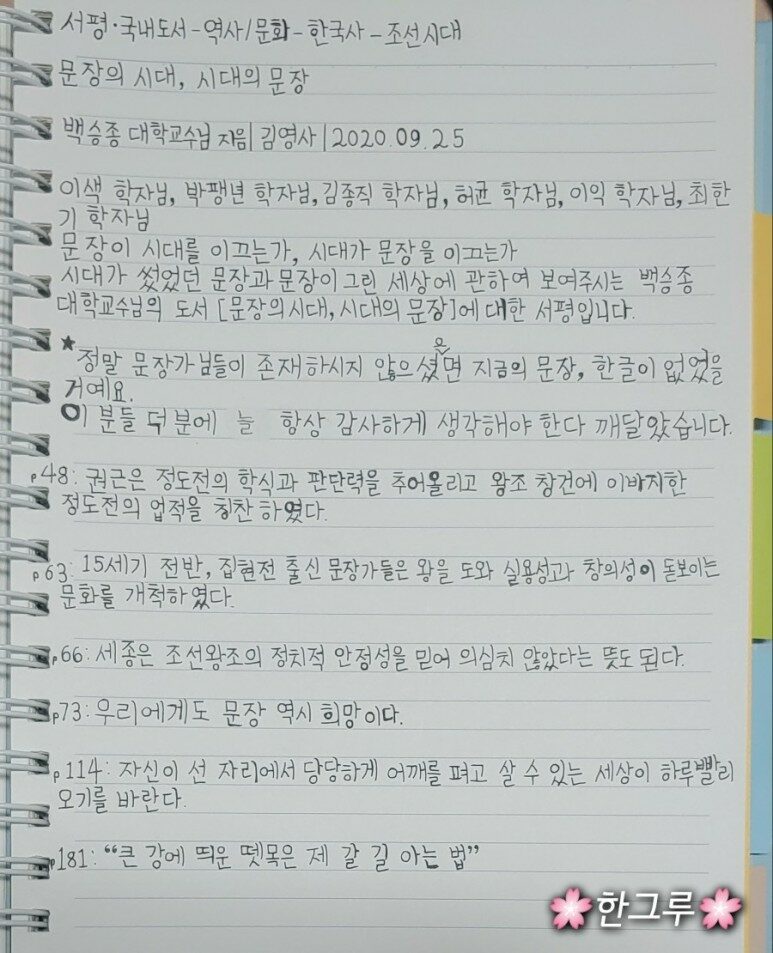 서평·국내도서-역사/문화-한국사-조선시대
문장의 시대, 시대의 문장
백승종 대학교수님 지음|김영사|2020.09.25
이색 학자님, 박팽년 학자님, 김종직 학자님, 허균 학자님, 이익 학자님, 최한
기 학자님
문장이 시대를 이끄는가, 시대가 문장을 이끄는가
시대가 썼었던 문장과 문장이 그린 세상에 관하여 보여주시는 백승종
대학교수님의 도서 [문장의시대, 시대의 문장]에 대한 서평입니다.
★정말 문장가님들이 존재하시지 않으셨으면 지금의 문장, 한글이 없었을
거예요.
이 분들 덕분에 늘 항상 감사하게 생각해야 한다 깨달았습니다.
p48: 권근은 정도전의 학식과 판단력을 추어올리고 왕조 창건에 이바지한
정도전의 업적을 칭찬하였다.
p63: 15세기 전반, 집현전 출신 문장가들은 왕을 도와 실용성과 창의성이 돋보이는
문화를 개척하였다.
p66: 세종은 조선왕조의 정치적 안정성을 믿어 의심치 않았다는 뜻도 된다.
p73: 우리에게도 문장 역시 희망이다.
p114: 자신이 선 자리에서 당당하게 어깨를 펴고 살 수 있는 세상이 하루빨리
오기를 바란다.
p181: “큰 강에 띄운 뗏목은 제 갈 길 아는 법”
🌸한그루🌸